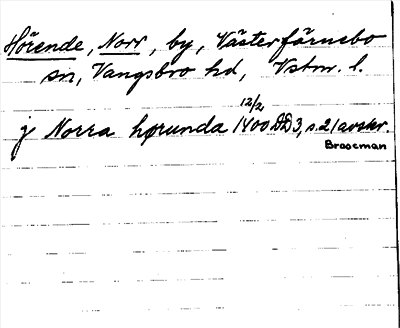 Hörende, Norr, by, Västerfärnebo
sn, Vangsbro hd, Vstm. l.
12/2
j Norra hørunda 1400 DD3, s. 21 avskr.
Brocman